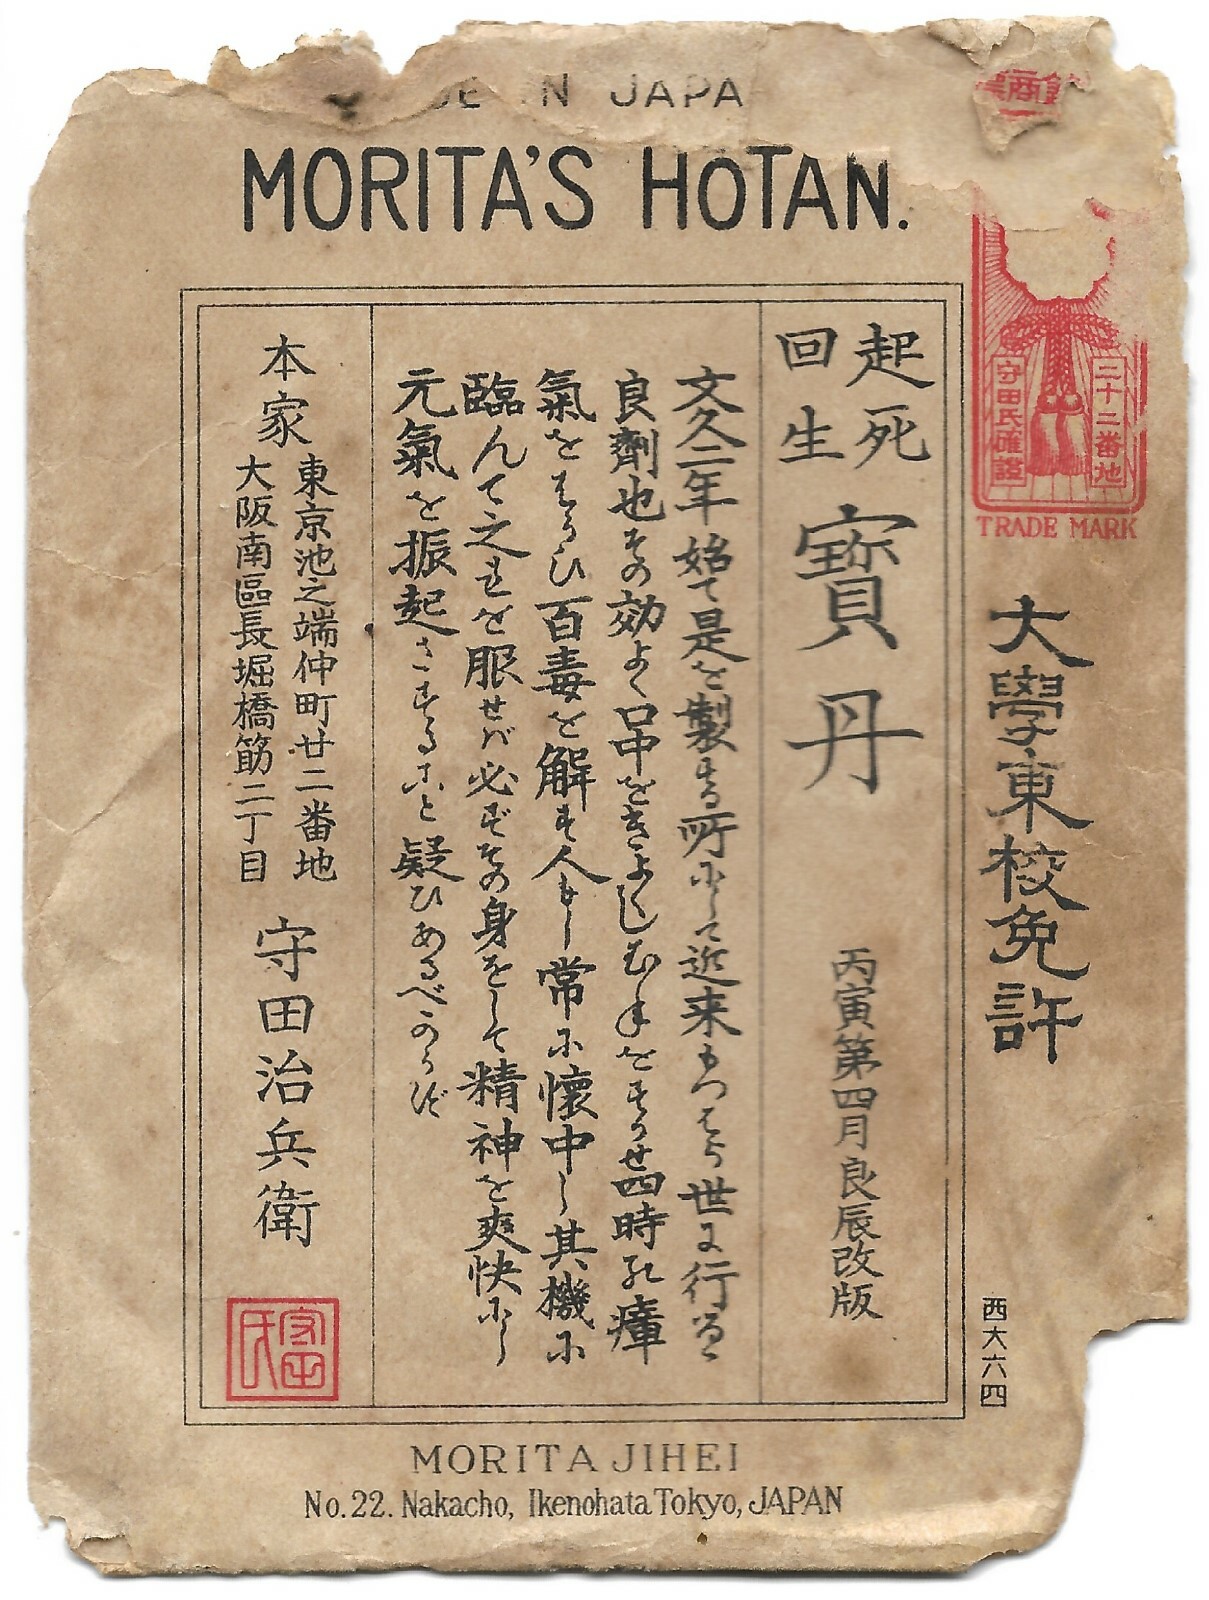 DE IN JAPA
MORITA'S HOTAN.
二十二番地
守田氏確證
TRADE MARK
大學東校免許
西大六四
起死
回生
寶丹
丙寅第四月良辰改版
文久二年始て是を製する所にして近来もつはら世に行るゝ
良劑也その効よく口中をきよくしむねをすかせ四時乃瘴
氣をはらひ百毒を解す人もし常に懷中し其機に
臨んて之れを服せバ必ずその身をして精神を爽快にし
元氣を振起さすること疑ひあるべからず
本家
東京池之端仲町廿二番地
大阪南區長堀橋筋二丁目
守田治兵衛
守田氏
MORITA JIHEI
No.22. Nakacho, Ikenohata Tokyo, JAPAN